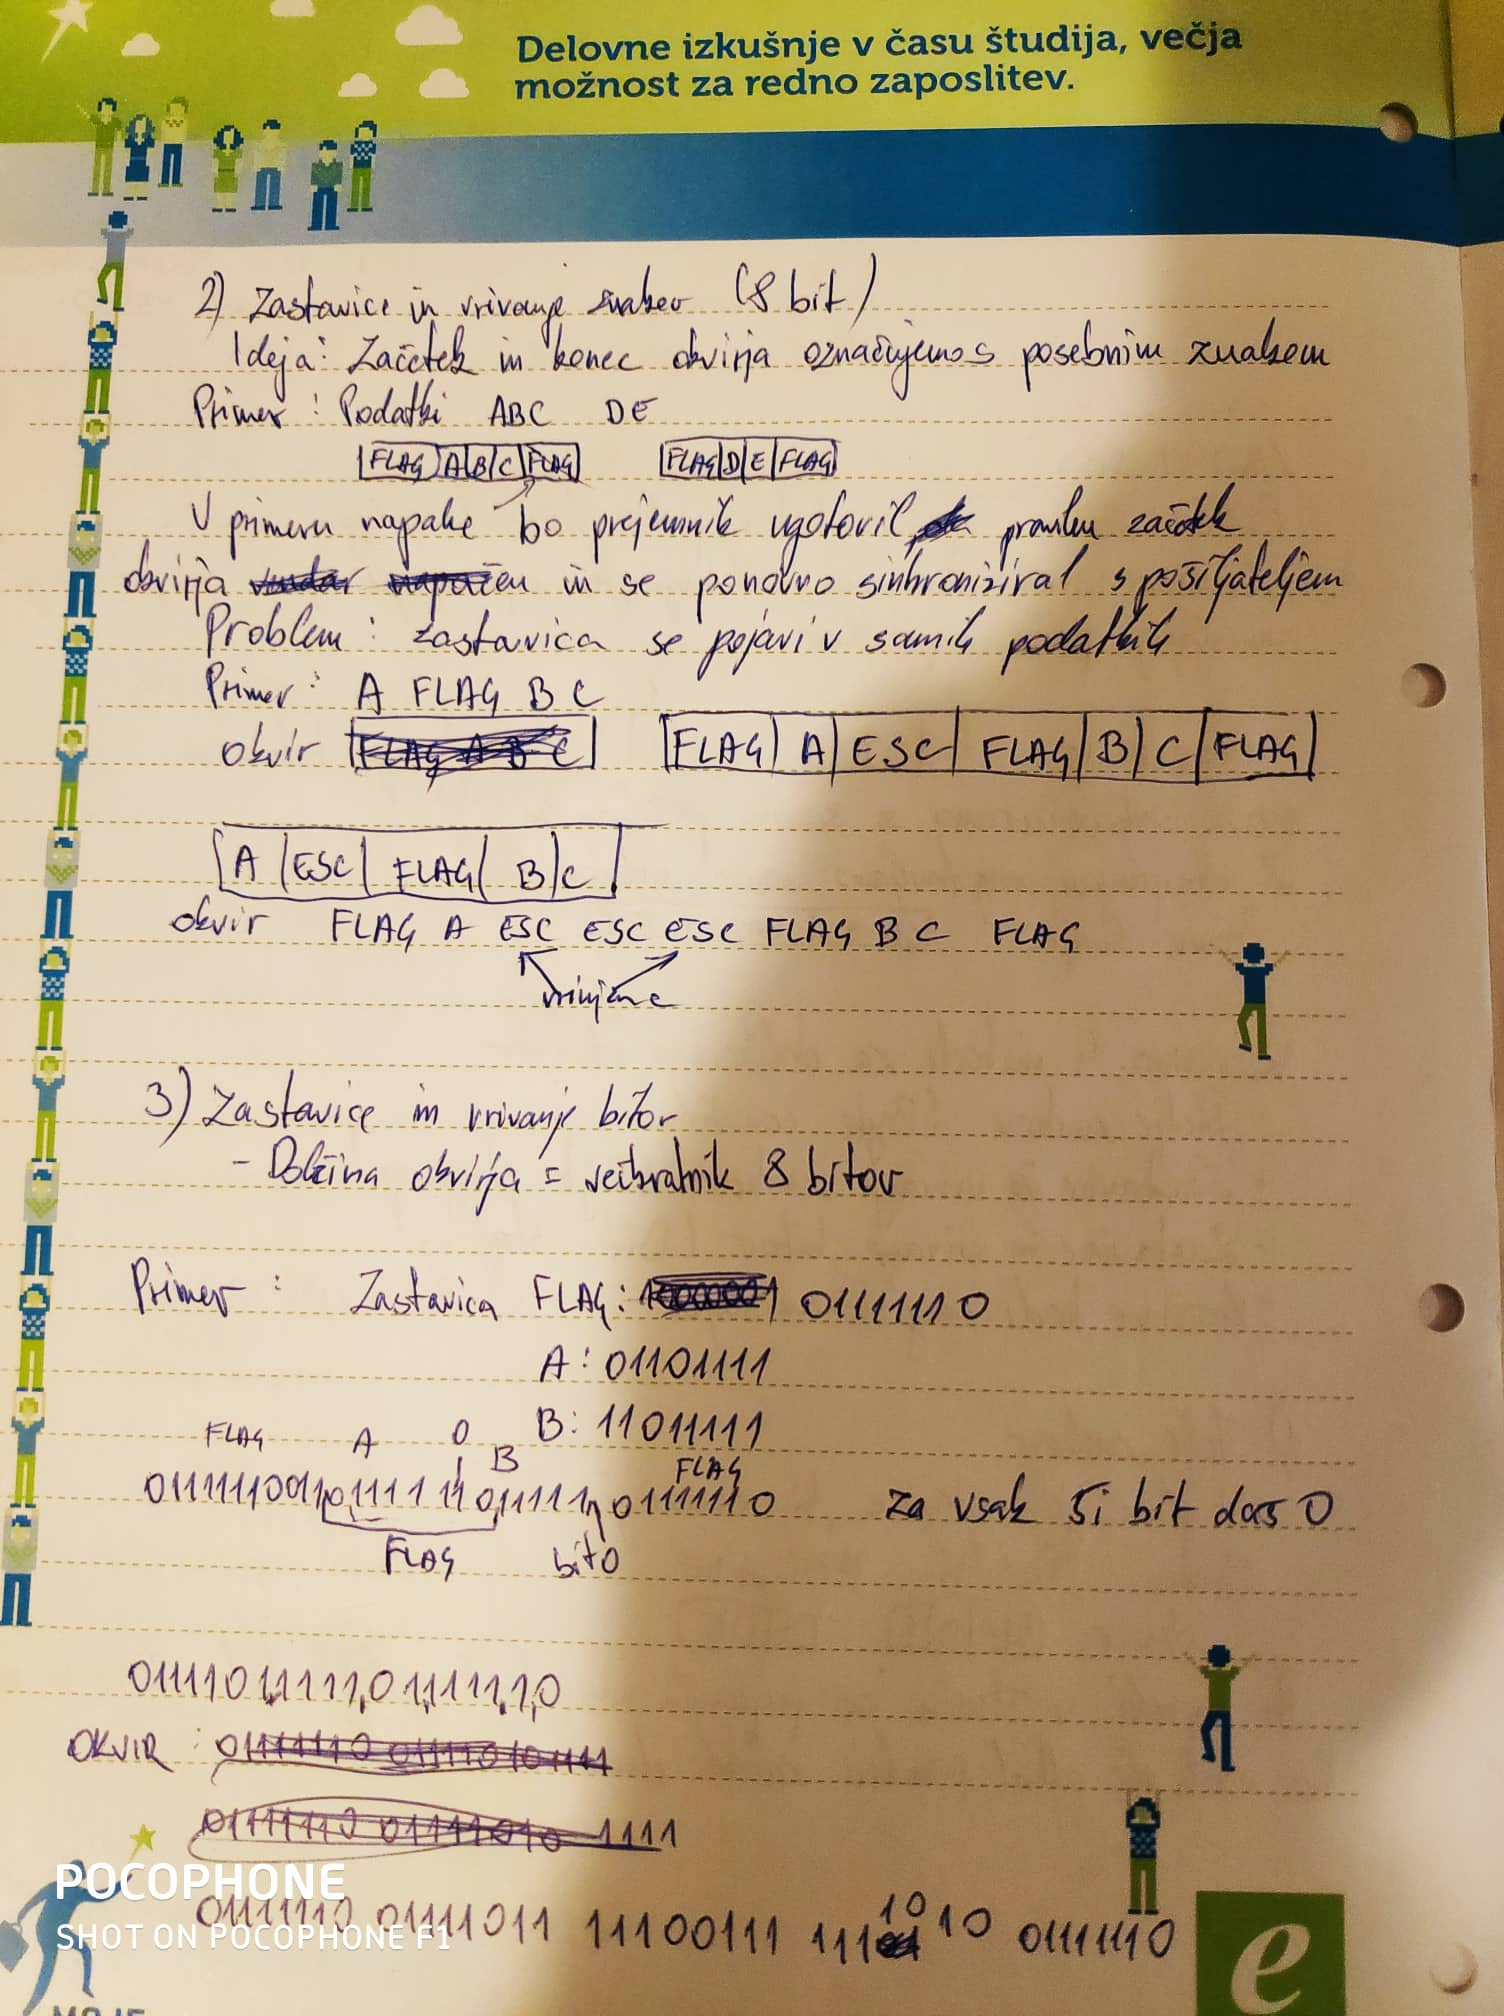 Delovne izkušnje v času študija, večja
možnost za redno zaposlitev.
2) Zastavice in vrivanje znakov (8 bit)
Ideja: Začetek in konec okvirja označujemo s posebnim znakom
Primer: Podatki ABC DE
FLAG A B C FLAG FLAG D E FLAG
V primeru napake bo prejemnik ugotovil pravilen začetek
okvirja in se ponovno sinhroniziral s pošiljateljem
Problem: zastavica se pojavi v samih podatkih
Primer: A FLAG B C
okvir FLAG A ESC FLAG B C FLAG
A ESC FLAG B C
okvir FLAG A ESC ESC ESC FLAG B C FLAG
vrinjene
3) Zastavice in vrivanje bitov
- Dolžina okvirja = večkratnik 8 bitov
Primer: Zastavica FLAG: 01111110
A: 01101111
B: 11011111
FLAG A 0 B FLAG
za vsak 5i bit das 0
FLAG bit 0
OKVIR:
01111110 01111011 11100111 111 10 10 01111110
POCOPHONE
SHOT ON POCOPHONE F1
e
MOJE